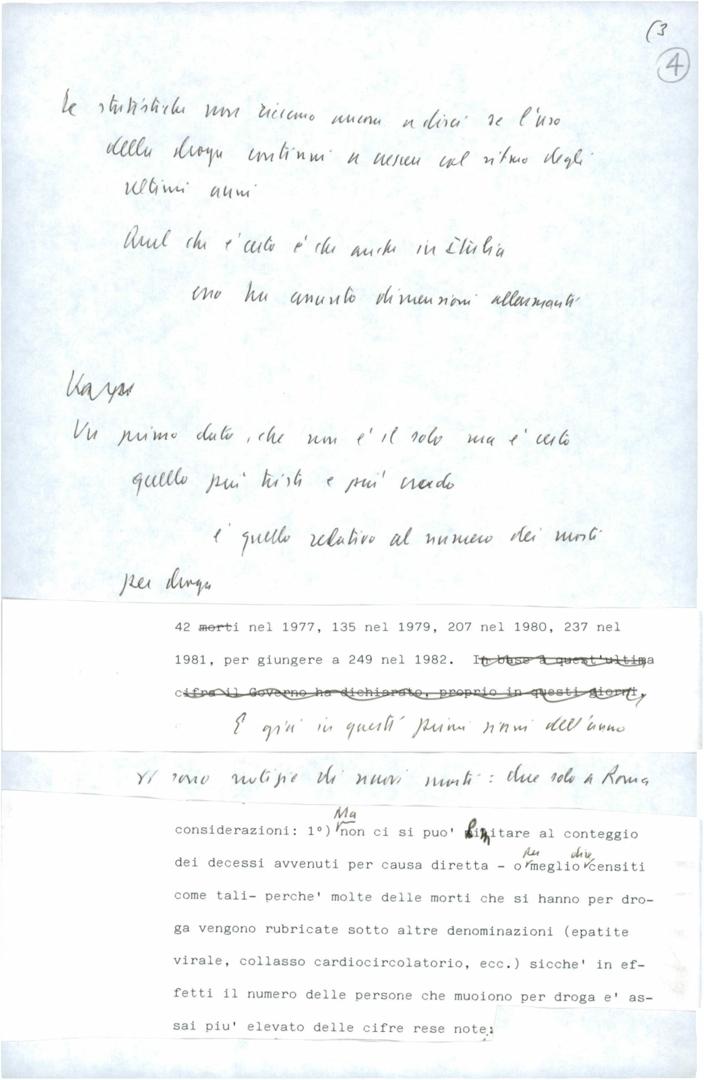 (3
4
Le statistiche non riescono ancora a dirci se l'uso
della droga continui a crescere col ritmo degli
ultimi anni
Quel che è certo è che anche in Italia
esso ha assunto dimensioni allarmanti
Un primo dato, che non è il solo ma è certo
quello più triste e più crudo
è quello relativo al numero dei morti
per droga
42 morti nel 1977, 135 nel 1979, 207 nel 1980, 237 nel
1981, per giungere a 249 nel 1982. In base a quest'ultima
cifra il Governo ha dichiarato, proprio in questi giorni,
E già in questi primi giorni dell'anno
vi sono notizie di nuovi morti: due solo a Roma
Ma
considerazioni: 1°) non ci si puo' limitare al conteggio
per dire
dei decessi avvenuti per causa diretta - o meglio censiti
come tali- perche' molte delle morti che si hanno per dro-
ga vengono rubricate sotto altre denominazioni (epatite
virale, collasso cardiocircolatorio, ecc.) sicche' in ef-
fetti il numero delle persone che muoiono per droga e' as-
sai piu' elevato delle cifre rese note: